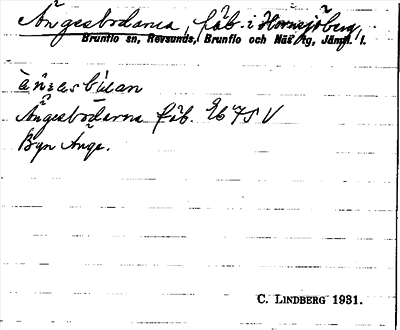 Ångesbodarna, fäb. i Hornsjöberg,
Brunflo sn, Revsunds, Brunflo och Näs tg, Jämtl. l.
Ångesbodarna fäb. Eb 75 V
Byn Ånge.
C. LINDBERG 1931.